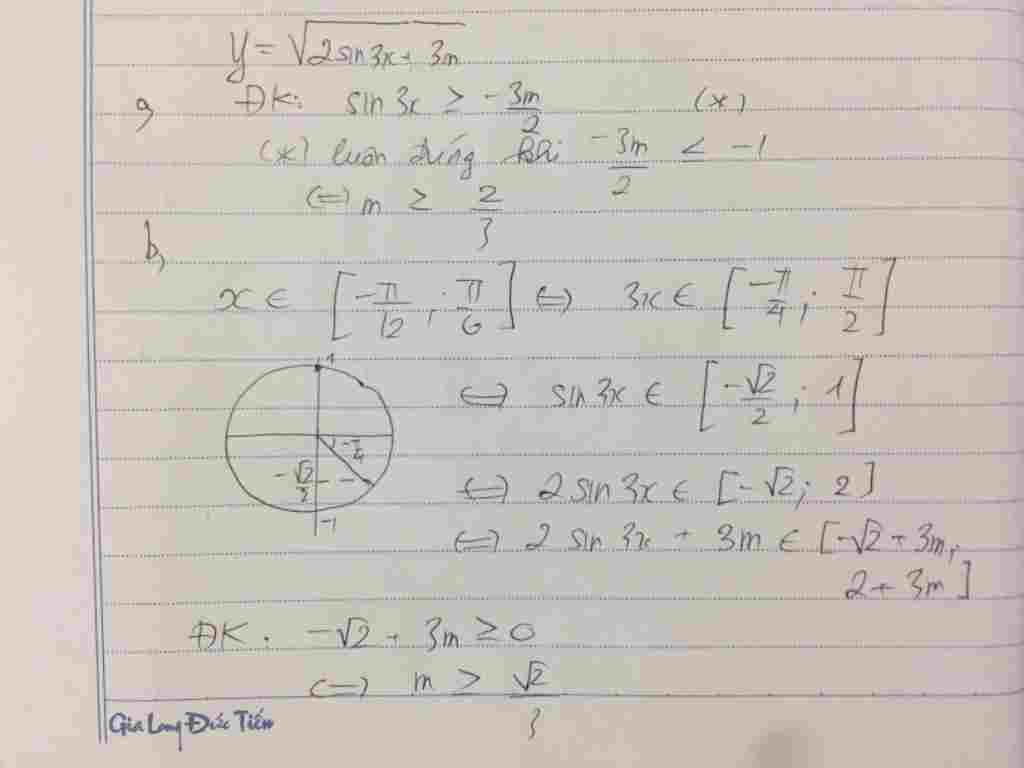 y = √(2sin3x + 3m)
a, ĐK: sin 3x ≥ -3m/2 (*)
(*) luôn đúng khi -3m/2 ≤ -1
⇔ m ≥ 2/3
b,
x ∈ [-π/12 ; π/6] ⇔ 3x ∈ [-π/4 ; π/2]
1
⇔ sin 3x ∈ [-√2/2 ; 1]
-π/4
-√2/2
⇔ 2 sin 3x ∈ [-√2; 2]
-1
⇔ 2 sin 3x + 3m ∈ [-√2 + 3m;
2 + 3m]
ĐK: -√2 + 3m ≥ 0
⇔ m ≥ √2/3
Gia Long Đức Tiến